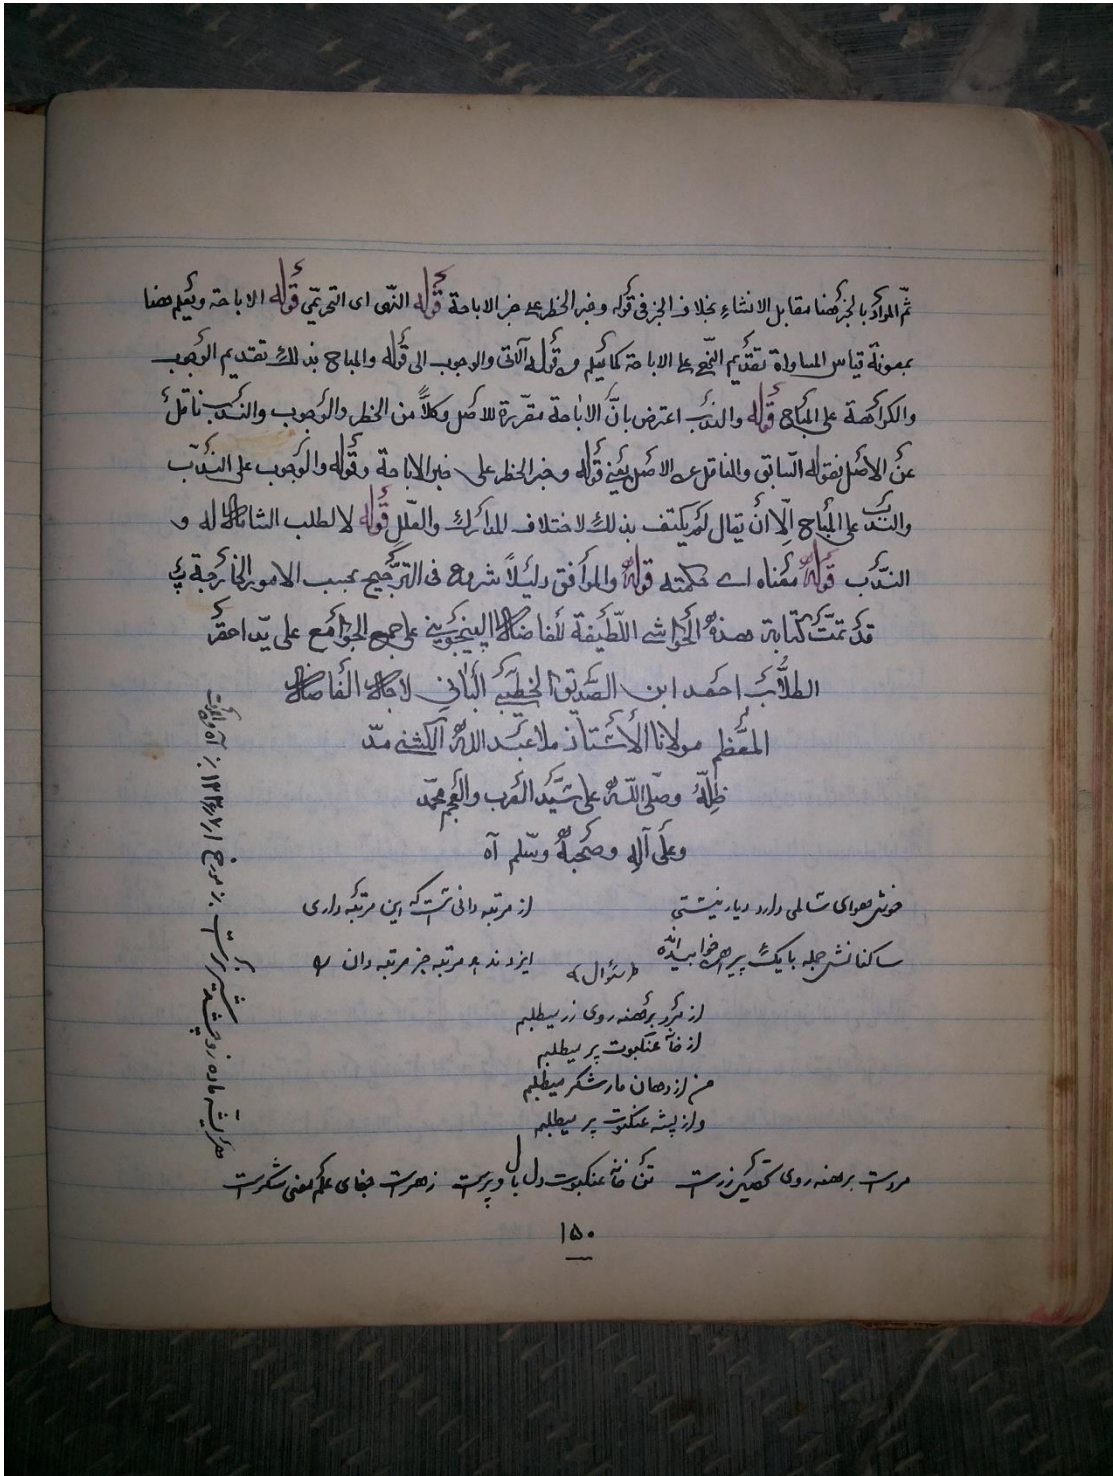 ثمّ المراد بالخبر ههنا مقابل الانشاء بخلاف الخبر فى قوله وخبر الخطر على خبر الاباحة قوله النّهى اى التحريمّى قوله الاباحة ويعلم ههنا
بمعونة قياس المساواة تقديم النّهى على الاباحة كما يعلم من قوله الآتى والوجوب الى قوله والمباح بذلك تقديم الوجوب
والكراهة على المباح قوله والندب اعترض بانّ الاباحة مقرّرة للاصل وكلاًّ من الخطر والوجوب والندب ناقل
عن الاصل فقوله السّابق والناقل عن الاصل يغنى قوله وخبر الخطر على خبر الاباحة وقوله والوجوب على النّدب
والنّدب على المباح إلّا انّ يقال لم يكتف بذلك لاختلاف المدارك والعلل قوله لا لطلب الشامل له و
النّدب قوله معناه اى حكمته قوله والموافق دليلاً شروع فى التّرجيح بحسب الامور الخارجة
قد تمّت كتابة هذه الحواشى اللّطيفة للفاضل الپينجوينى على جمع الجوامع على يد احقر
الطلّاب احمد ابن الصّديق الخطيبى البانى لاجل الفاضل
المعّظم مولانا الأستاذ ملا عبد الله الكشنى مدّ
ظلّه وصلّى اللّه على سيّد العرب والعجم محمّد
وعلى آله وصحبه وسّلم آه
خوش هواى سالمى دارد ديار نيستى
ساكنانش جمله با يك پيرهن خوابيده اند
از مرتبه دانى ست كه اين مرتبه دارى
ايزد ندهد مرتبه جز مرتبه دان را
﴿سئوال﴾
از مرد برهنه روى زر ميطلبم
از خانه عنكبوت پر ميطلبم
من از دهان مار شكر ميطلبم
واز پشه عنكبوت پر ميطلبم
مرد است برهنه روى تحصيل زر است تن خانه عنكبوت دل بال وپر است زهر است جفاى علم معنى شكر است
١٥٠